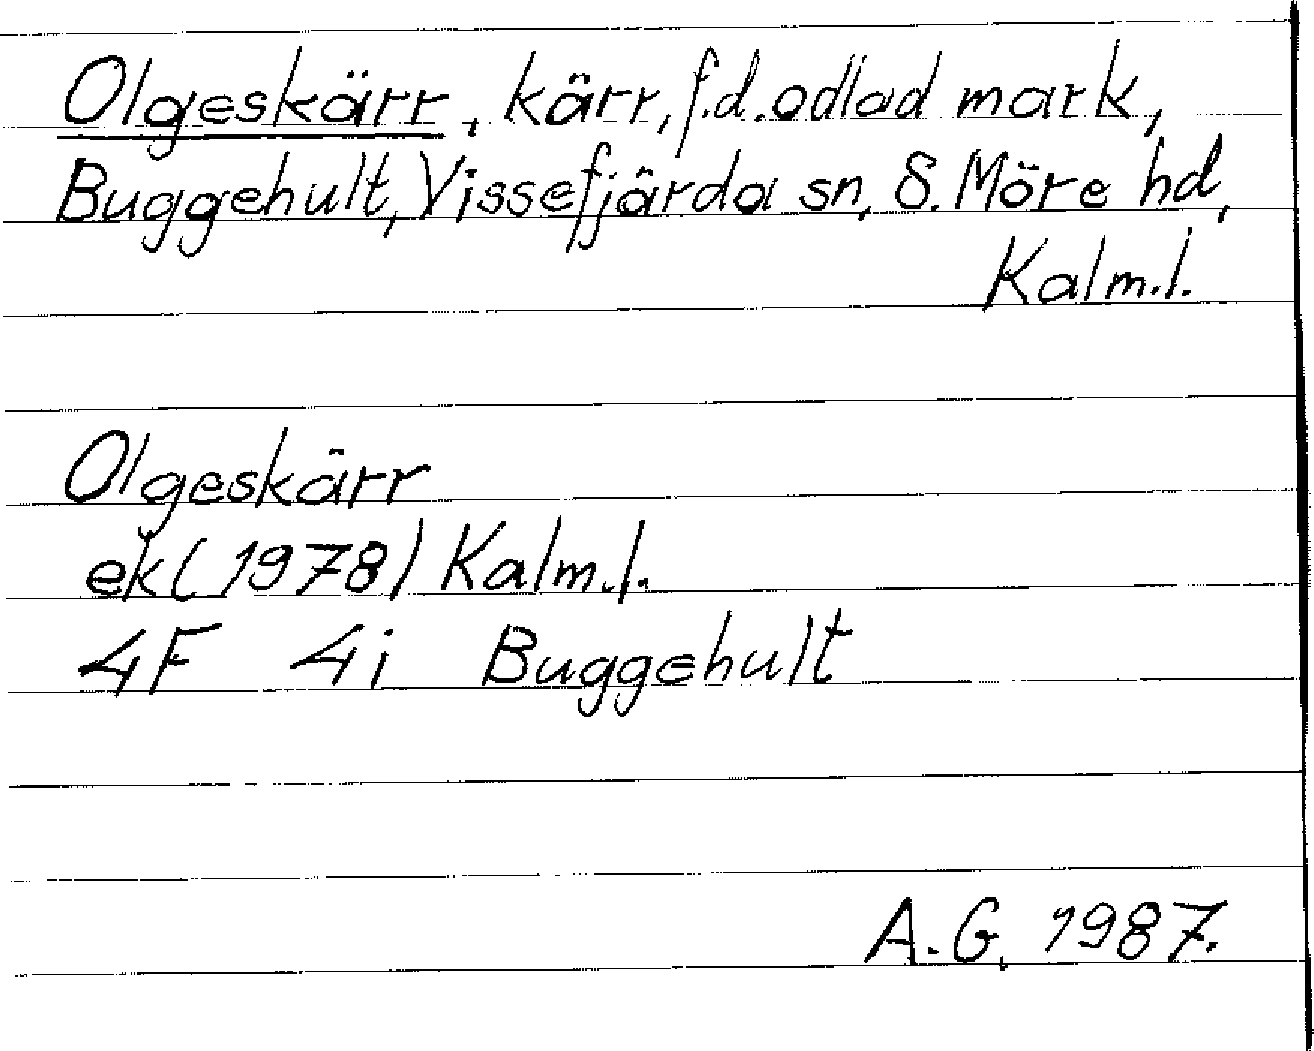 Olgeskärr, kärr, f.d. odlad mark,
Buggehult, Vissefjärda sn, S. Möre hd,
Kalm.l.
Olgeskärr
ek (1978) Kalm.l.
4F 4i Buggehult
A.G. 1987.